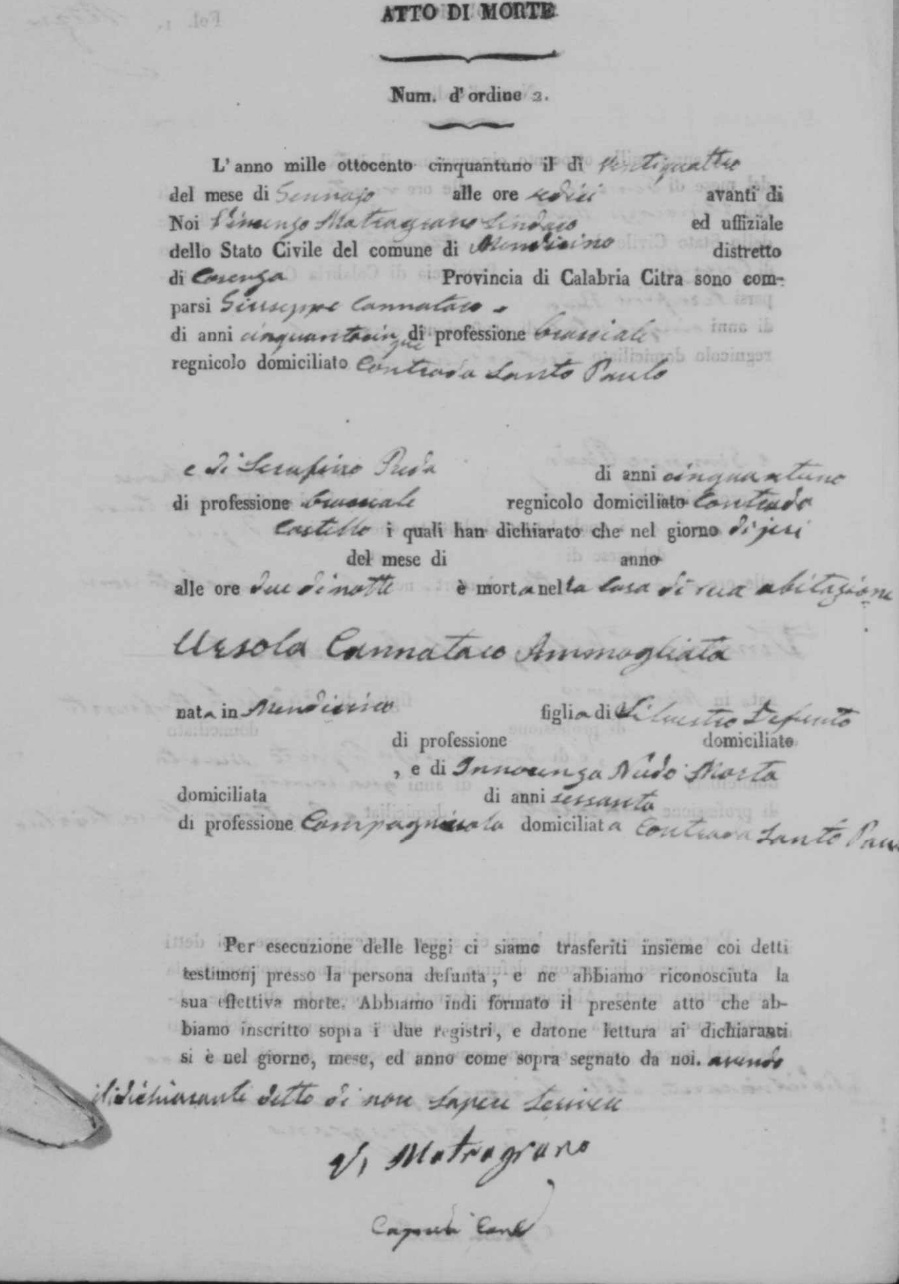 ATTO DI MORTE
Num. d'ordine 2.
L'anno mille ottocento cinquantuno il dì Ventiquattro
del mese di Gennajo alle ore sedici avanti di
Noi Vincenzo Matragrano Sindaco ed uffiziale
dello Stato Civile del comune di Mendicino distretto
di Cosenza Provincia di Calabria Citra sono com-
parsi Giuseppe Cannataro
di anni cinquantacinque di professione bracciale
regnicolo domiciliato Contrada Santo Paulo
e di SerafinoReda di anni cinquantuno
di professione bracciale regnicolo domiciliato Contrada
Castello i quali han dichiarato che nel giorno di jeri
del mese di anno
alle ore due di notte è morta nella casa di sua abitazione
Ursola Cannataro Ammogliata
nata in Mendicino figlia di Silvestro Defunto
di professione domiciliato
, e di Innocenza Nudo Morta
domiciliata di anni sessanta
di professione Campagnuola domiciliata Contrada Santo
Per esecuzione delle leggi ci siamo trasferiti insieme coi detti
testimonj presso la persona defunta, e ne abbiamo riconosciuta la
sua effettiva morte. Abbiamo indi formato il presente atto che ab-
biamo inscritto sopra i due registri, e datone lettura ai dichiaranti
si è nel giorno, mese, ed anno come sopra segnato da noi. avendo
i dichiaranti detto di non sapere scrivere
V. Matragrano